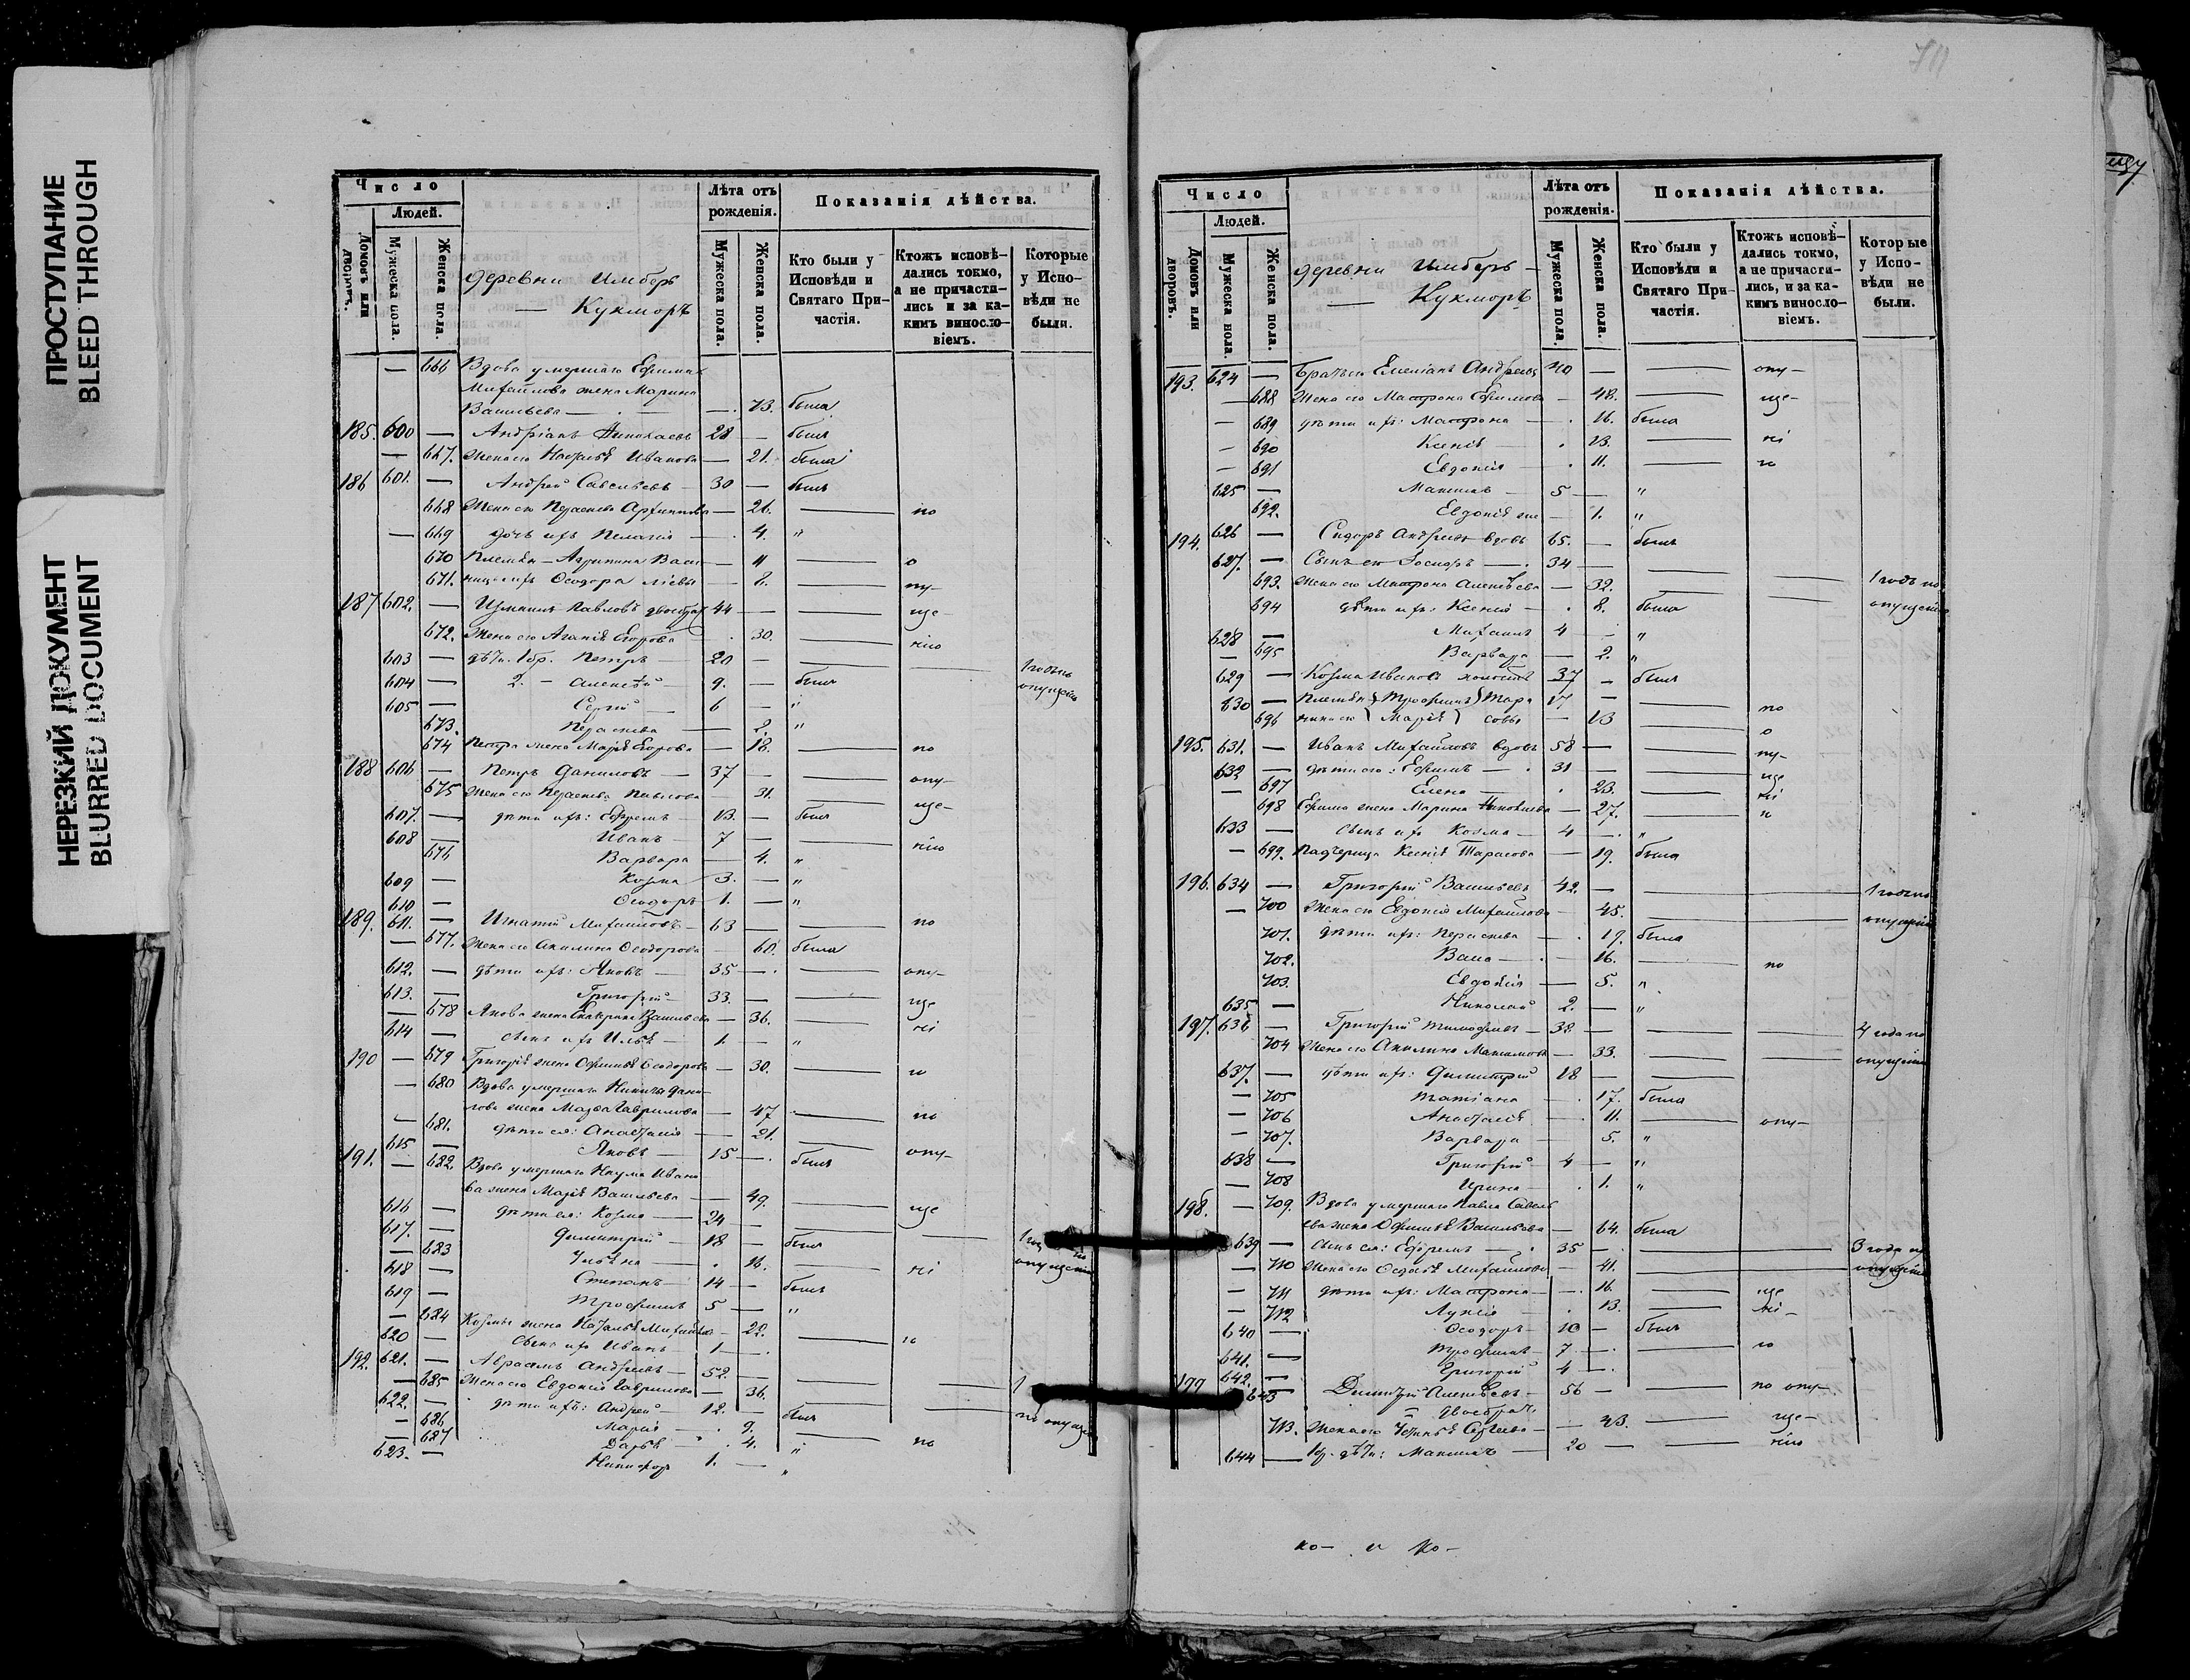 ПРОСТУПАНИЕ
BLEED THROUGH
НЕРЕЗКИЙ ДОКУМЕНТ
BLURRED DOCUMENT
Число
Людей.
Домовъ или дворовъ.
Мужеска пола.
Женска пола.
деревни Имберь
— Кукморъ
Лѣта отъ рожденія.
Мужеска пола.
Женска пола.
Показанія дѣйства.
Кто были у Исповѣди и Святаго Причастія.
Ктожъ исповѣдались токмо, а не причастились и за какимъ винословіемъ.
Которые у Исповѣди не были.
— 666 Вдова умершаго Ефима
Михайлова жена Марина
Васильева — — 73. была
185. 600 — Андріанъ Николаевъ 28 — былъ
— 667. Жена его Наталья Иванова — 21. была
186 601. — Андрей Савельевъ — 30 — былъ
668 Жена его — 26. — по
— 669 дочь ихъ Пелагія — 4. "
670 Племян— Агрипина Васи — 11 — о
671. ницы ихъ Ѳеодора лісвы — 8. — пу—
187 602. — Павловъ двоебрач 44 — — ще—
672. Жена его Агапія Егорова — 30. — нію
603 — дѣти 1 бр. Петръ — 20 — 1 годъ по
604 — 2. — Алексѣй — 9. — былъ опущенію
605 — Сергій — 6 — "
673. Параскева — 2. "
674 Петра жена Марія Егорова — 18. — по
188 606 — Петръ Даниловъ — 37 — — опу—
675 Жена его Параскева Павлова — 31. — ще—
607. — дѣти ихъ: Ефремъ — 13. — былъ
608 — Иванъ — 7 — — нію
676 Варвара — 4. "
609 — Козма — 3. — "
610 — Ѳеодоръ — 1. — "
189. 611. — Игнатій Михайловъ — 63 — — по
— 677. Жена его Акилина Ѳеодорова — 60. была
612. — дѣти ихъ: Яковъ — 35 — — опу—
613. — Григорій — 33. — — ще
— 678 Якова жена Екатерина Васильева — 36. — ні
614 — сынъ ихъ Илья — 1. — "
190 — 679 Григорія жена Ѳеодорова — 30. — ю
— 680 Вдова умершаго Никиты Дани—
лова жена Гаврилова — 47 — по
— 681. дѣти ея: Анастасія — 21. — опу—
615 — Яковъ — 15 — былъ
191. — 682. Вдова умершаго Наума Ивано
ва жена Марія Васильева — 49. — ще
616 — дѣти ея: Козма — 24 —
617. — Димитрій — 18 — былъ
— 683 Ульяна — 16. — ні опущенію
618 — Степанъ — 14 — былъ
619 — Трофимъ 5 — "
— 684 Козмы жена Наталья Михайлова — 22. — ю
620 — Сынъ ихъ Иванъ — 1 —
192. 621. — Абрамъ Андреевъ — 52. — — 1
— 685 Жена его Евдокія Гаврилова — 36.
622. — дѣти ихъ: Андрей — 12. — былъ по опуще
— 686 Марія — 9. — по
— 687 Дарья — 4. "
623. — Никифоръ 1. — "
Число
Людей.
Домовъ или дворовъ.
Мужеска пола.
Женска пола.
деревни Имберь —
— Кукморъ
Лѣта отъ рожденія.
Мужеска пола.
Женска пола.
Показанія дѣйства.
Кто были у Исповѣди и Святаго Причастія.
Ктожъ исповѣдались токмо, а не причастились, и за какимъ винословіемъ.
Которые у Исповѣди не были.
193. 624 — Братъ его Емеліанъ Андреевъ 40 — — опу—
— 688 Жена его Матрона Ефимова — 48. — ще—
— 689 дѣти ихъ: Матрона — 16. была
— 690 Ксенія — 13. — ні
— 691 Евдокія — 11. — ю
625 — Максимъ — 5 — "
692. Евдокія — 1. "
194. 626 — Сидоръ Андреевъ вдовъ 65. — былъ
627. — Сынъ его — 34 — — 1 годъ по
693. Жена его Матрона Алексѣева — 32. — опущенію
694 дѣти ихъ: Ксенія — 8. была
628 — Михаилъ 4 — "
— 695 Варвара — 2. "
629 — Козма Ивановъ холостъ 37 — былъ
630 — Племян Трофимъ Тара 17 — — по
696 ники его Марія совы — 13 — о
195. 631. — Иванъ Михайловъ вдовъ 58 — — пу—
632 — дѣти его: Ефимъ — 31 — — ще
— 697 Елена — 23. — ні
698 Ефима жена Марина Николаева — 27. — ю
633 — сынъ ихъ Козма — 4 — "
— 699. Падчерица Ксенія Тарасова — 19. была
196. 634 — Григорій Васильевъ 42. — — 1 годъ по
— 700 Жена его Евдокія Михайлова — 45. — опущенію
701. дѣти ихъ: Параскева — 19. была
702. Васа — 16. — по
703. Евдокія — 5. "
635 — Николай 2. — "
197. 636 — Григорій Тимофеевъ — 38 — — 4 года по
704 Жена его Акилина Максимова — 33. — опущенію
637. — дѣти ихъ: Димитрій 18 — —
— 705 Татіана — 17. была
— 706 Анастасія — 11. — опу—
— 707. Варвара — 5. "
638 — Григорій — 4 — "
— 708 Ирина — 1. "
198. — 709. Вдова умершаго Павла Савель
ева жена Васильева — 64. была
639 — сынъ ея: Ефремъ — 35 — — 3 года по
— 710 Жена его Михайлова — 41. — опущенію
— 711 дѣти ихъ: Матрона — 16. — ще
— 712 Лукія — 13. — ні—
640 — Ѳеодоръ — 10 — былъ
641. — Трофимъ — 7 — — ю
642. — Григорій 4 —
199 643 — Димитрій Алексѣевъ — 56 — — по опу—
двоебрач.
713. Жена его Устинья Сергеева — 43. — ще—
644 — 1 бр. дѣти: Максимъ — 20 — — нію
ко— и ко—